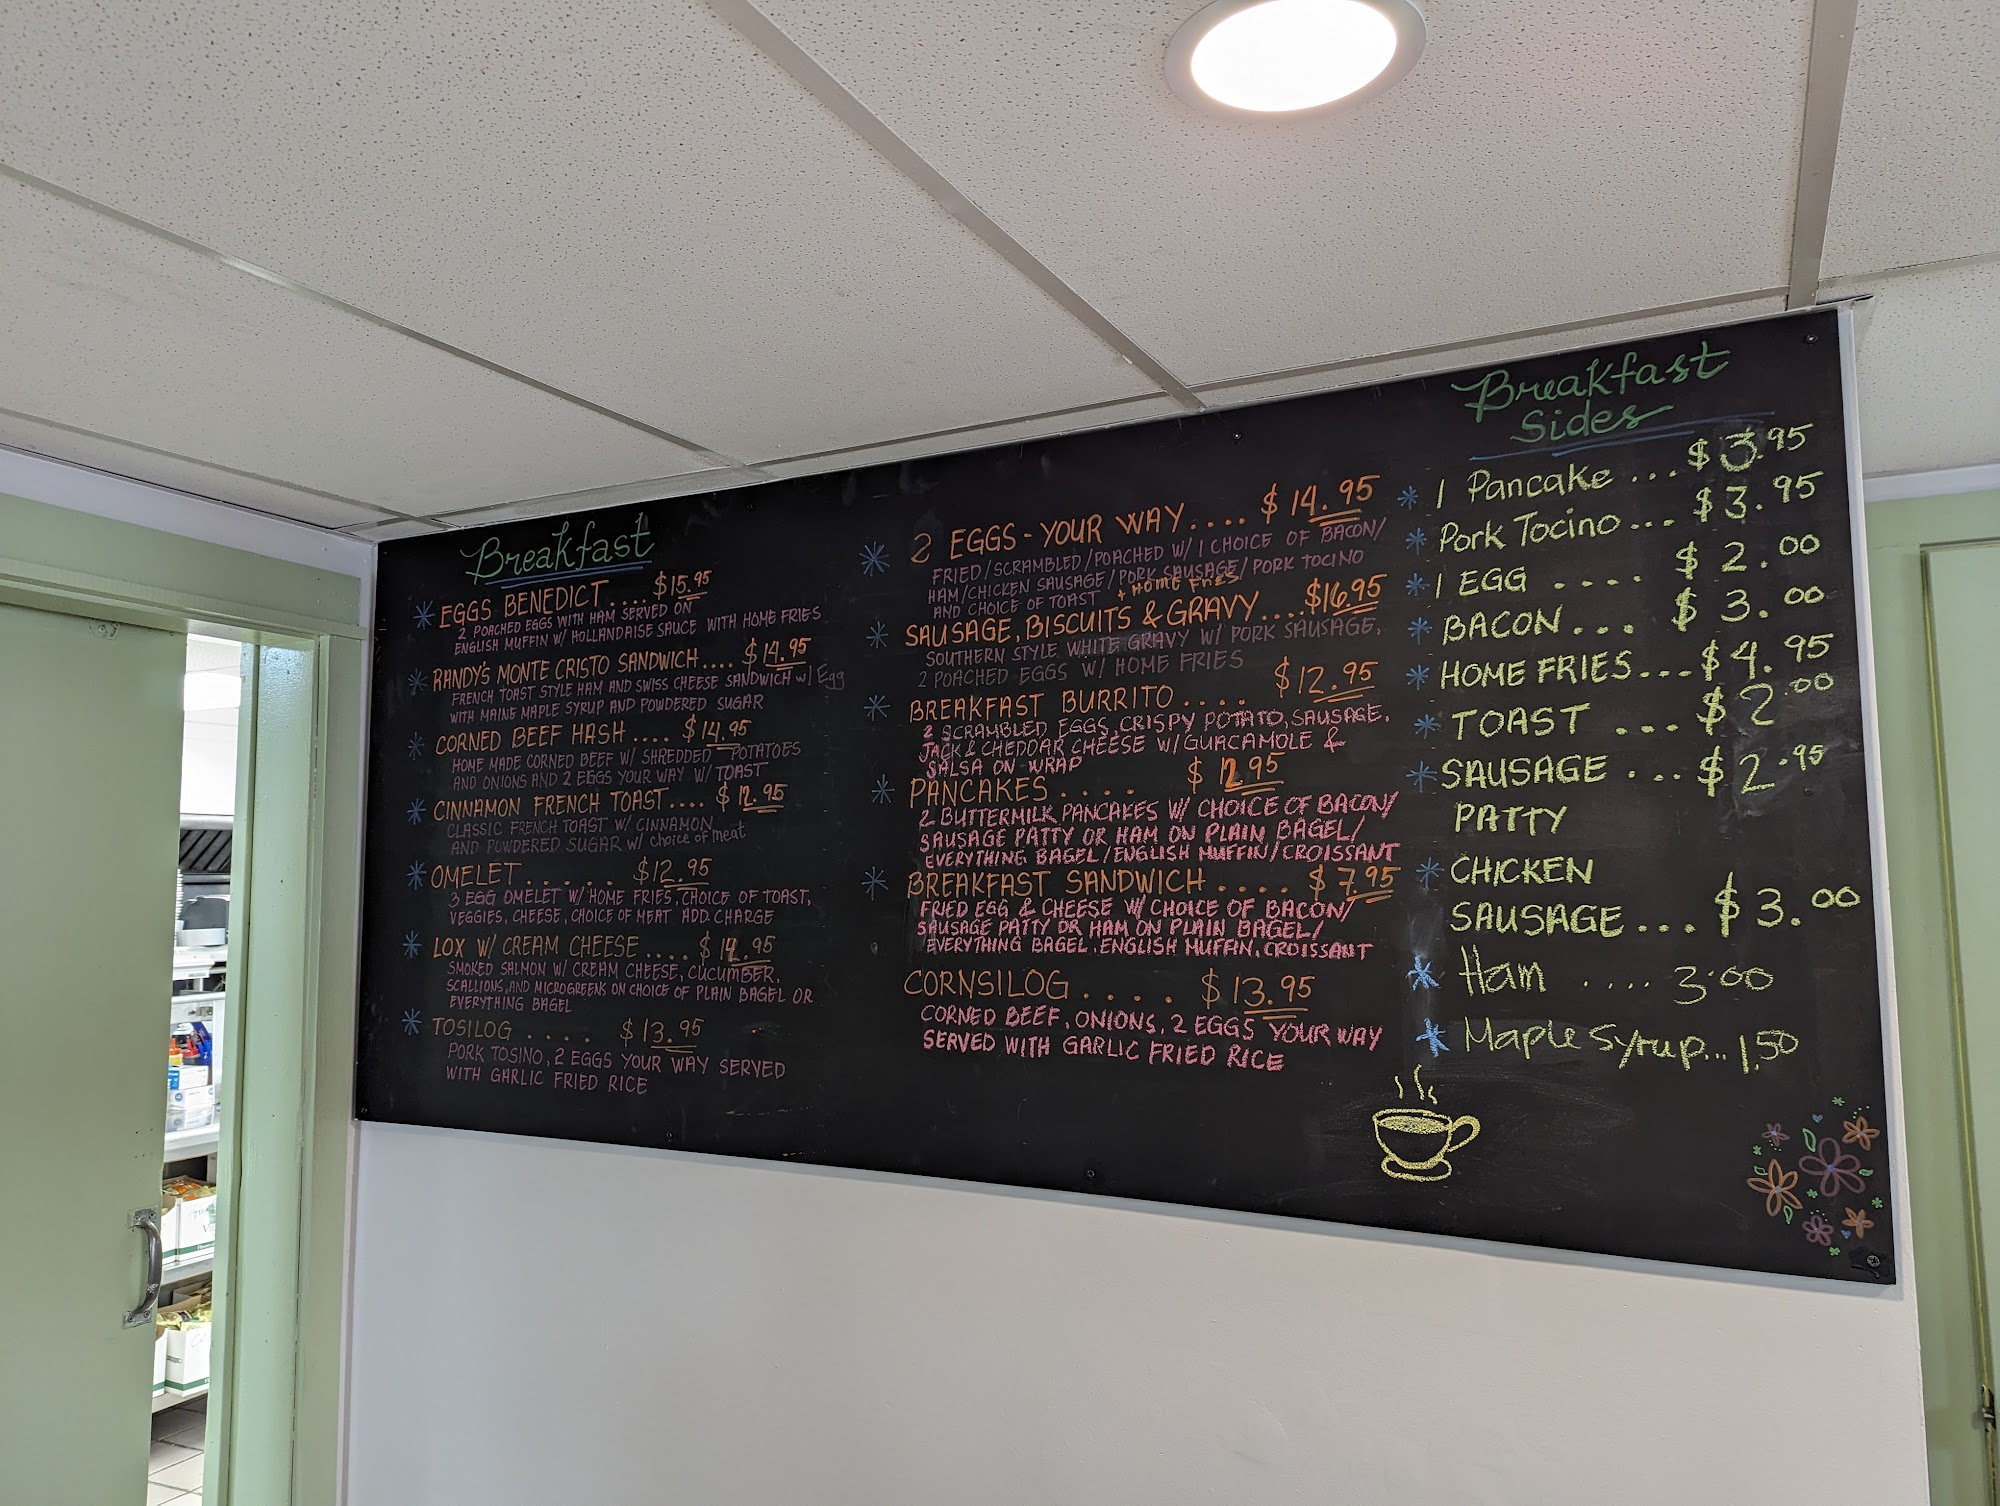 Breakfast
* EGGS BENEDICT.... $15.95
2 POACHED EGGS WITH HAM SERVED ON
ENGLISH MUFFIN W/ HOLLANDAISE SAUCE WITH HOME FRIES
* RANDY'S MONTE CRISTO SANDWICH.... $14.95
FRENCH TOAST STYLE HAM AND SWISS CHEESE SANDWICH w/ Egg
WITH MAINE MAPLE SYRUP AND POWDERED SUGAR
* CORNED BEEF HASH.... $14.95
HOME MADE CORNED BEEF W/ SHREDDED POTATOES
AND ONIONS AND 2 EGGS YOUR WAY W/ TOAST
* CINNAMON FRENCH TOAST.... $12.95
CLASSIC FRENCH TOAST W/ CINNAMON
AND POWDERED SUGAR w/ choice of meat
* OMELET..... $12.95
3 EGG OMELET W/ HOME FRIES, CHOICE OF TOAST,
VEGGIES, CHEESE, CHOICE OF MEAT ADD CHARGE
* LOX W/ CREAM CHEESE.... $14.95
SMOKED SALMON W/ CREAM CHEESE, CUCUMBER,
SCALLIONS, AND MICROGREENS ON CHOICE OF PLAIN BAGEL OR
EVERYTHING BAGEL
* TOSILOG.... $13.95
PORK TOSINO, 2 EGGS YOUR WAY SERVED
WITH GARLIC FRIED RICE
* 2 EGGS - YOUR WAY.... $14.95
FRIED/SCRAMBLED/POACHED W/ 1 CHOICE OF BACON/
HAM/CHICKEN SAUSAGE/PORK SAUSAGE/PORK TOCINO
AND CHOICE OF TOAST + HOME FRIES
* SAUSAGE, BISCUITS & GRAVY....$16.95
SOUTHERN STYLE WHITE GRAVY W/ PORK SAUSAGE,
2 POACHED EGGS W/ HOME FRIES
* BREAKFAST BURRITO.... $12.95
2 SCRAMBLED EGGS, CRISPY POTATO, SAUSAGE,
JACK & CHEDDAR CHEESE W/ GUACAMOLE &
SALSA ON WRAP
* PANCAKES.... $12.95
2 BUTTERMILK PANCAKES W/ CHOICE OF BACON/
SAUSAGE PATTY OR HAM ON PLAIN BAGEL/
EVERYTHING BAGEL/ENGLISH MUFFIN/CROISSANT
* BREAKFAST SANDWICH.... $7.95
FRIED EGG & CHEESE W/ CHOICE OF BACON/
SAUSAGE PATTY OR HAM ON PLAIN BAGEL/
EVERYTHING BAGEL, ENGLISH MUFFIN, CROISSANT
CORNSILOG.... $13.95
CORNED BEEF, ONIONS, 2 EGGS YOUR WAY
SERVED WITH GARLIC FRIED RICE
Breakfast
Sides
* 1 Pancake ... $3.95
* Pork Tocino... $3.95
* 1 EGG .... $2.00
* BACON... $3.00
* HOME FRIES...$4.95
* TOAST ... $2.00
* SAUSAGE ... $2.95
PATTY
* CHICKEN
SAUSAGE... $3.00
* Ham .... 3.00
* Maple Syrup... 1.50